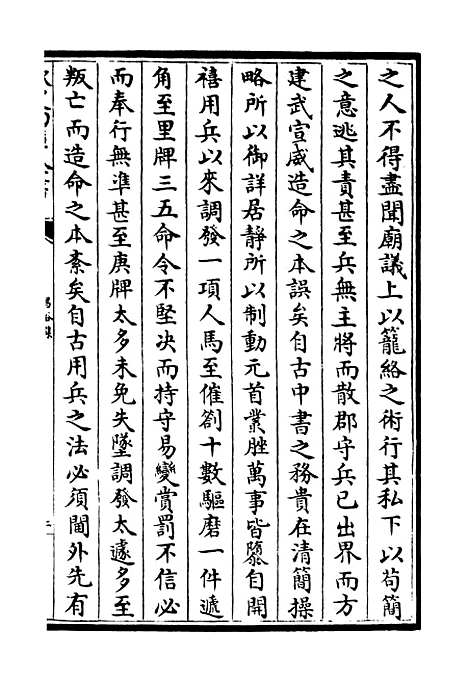 之人不得盡聞廟議上以籠絡之術行其私下以苟簡
之意逃其責甚至兵無主將而散郡守兵已出界而方
建武宣威造命之本誤矣自古中書之務貴在清簡操
略所以御詳居靜所以制動元首業脞萬事皆隳自開
禧用兵以來調發一項人馬至催劄十數驅磨一件遞
角至里牌三五命令不堅决而持守易變賞罰不信必
而奉行無準甚至庚牌太多未免失墜調發太遽多至
叛亡而造命之本紊矣自古用兵之法必須閫外先有